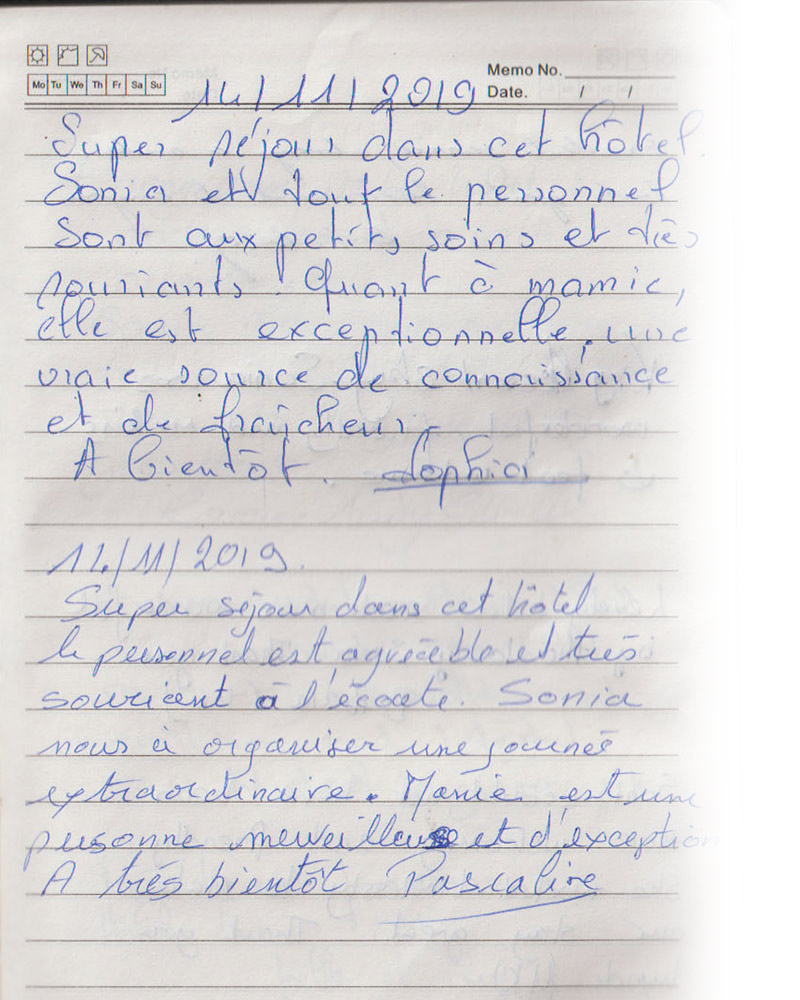 Memo No.
Mo Tu We Th Fr Sa Su
Date. / /
14/11/2019
Super séjour dans cet hôtel.
Sonia et tout le personnel
sont aux petits soins et très
souriants ! Quant à mamie,
elle est exceptionnelle, une
vraie source de connaissance
et de fraîcheur.
A bientôt. Sophia
14/11/2019.
Super séjour dans cet hôtel
le personnel est agréable et très
souriant à l'écoute. Sonia
nous à organiser une journés
extraordinaire. Mamie est une
personne merveilleuse et d'exception
A très bientôt Pascaline